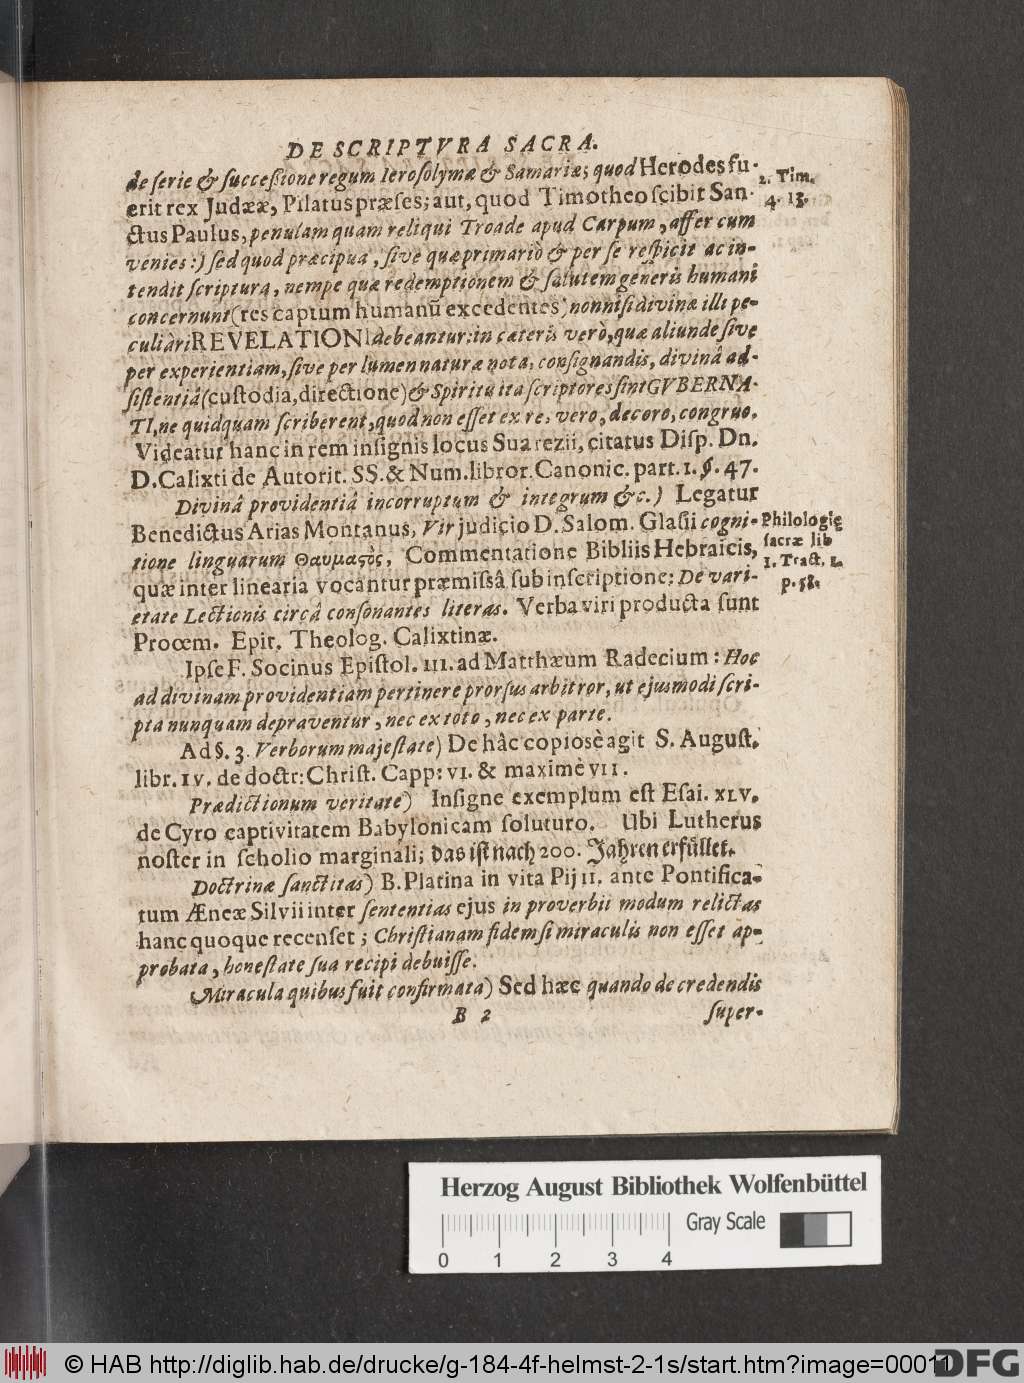 DE SCRIPTVRA SACRA.
de serie & successione regum Ierosolymæ & Samariæ; quod Herodes fu-
erit rex Judææ, Pilatus præses; aut, quod Timotheo scibit San-
ctus Paulus, penulam quam reliqui Troade apud Carpum, affer cum
venies:) sed quod præcipua, sive quæ primariò & per se respicit ac in-
tendit scriptura, nempe quæ redemptionem & salutem generis humani
concernunt (res captum humanũ excedentes) non nisi divinæ illi pe-
culiari REVELATIONI debeantur: in cæteris verò, quæ aliunde sive
per experientiam, sive per lumen naturæ nota, consignandis, divinâ ad-
sistentiâ (custodia, directione) & Spiritu ita scriptores sint GVBERNA-
TI, ne quidquam scriberent, quod non esset ex re, vero, decoro, congruo.
Videatur hanc in rem insignis locus Suarezii, citatus Disp. Dn.
D. Calixti de Autorit. SS. & Num. libror. Canonic. part. 1. §. 47.
Divinâ providentiâ incorruptum & integrum &c.) Legatur
Benedictus Arias Montanus, Vir judicio D. Salom. Glasii cogni-
tione linguarum Θαυμαςὸς, Commentatione Bibliis Hebraicis,
quæ inter linearia vocantur præmissâ sub inscriptione: De vari-
etate Lectionis circâ consonantes literas. Verba viri producta sunt
Prooem. Epit. Theolog. Calixtinæ.
Ipse F. Socinus Epistol. III. ad Matthæum Radecium: Hoc
ad divinam providentiam pertinere prorsus arbitror, ut ejusmodi scri-
pta nunquam depraventur, nec ex toto, nec ex parte.
Ad §. 3. Verborum majestate) De hâc copiosè agit S. August.
libr. IV. de doctr: Christ. Capp: VI. & maximè VII.
Prædictionum veritate) Insigne exemplum est Esai. XLV.
de Cyro captivitatem Babylonicam soluturo. Ubi Lutherus
noster in scholio marginali; das ist nach 200. Jahren erfüllet.
Doctrinæ sanctitas) B. Platina in vita Pij II. ante Pontifica-
tum Æneæ Silvii inter sententias ejus in proverbii modum relictas
hanc quoque recenset; Christianam fidem si miraculis non esset ap-
probata, honestate sua recipi debuisse.
Miracula quibus fuit confirmata) Sed hæc quando de credendis
B 2
super-
2. Tim.
4. 13.
Philologiæ
sacræ lib
1. Tract. 1.
p. 58.
Herzog August Bibliothek Wolfenbüttel
Gray Scale
0 1 2 3 4
© HAB http://diglib.hab.de/drucke/g-184-4f-helmst-2-1s/start.htm?image=00011
DFG